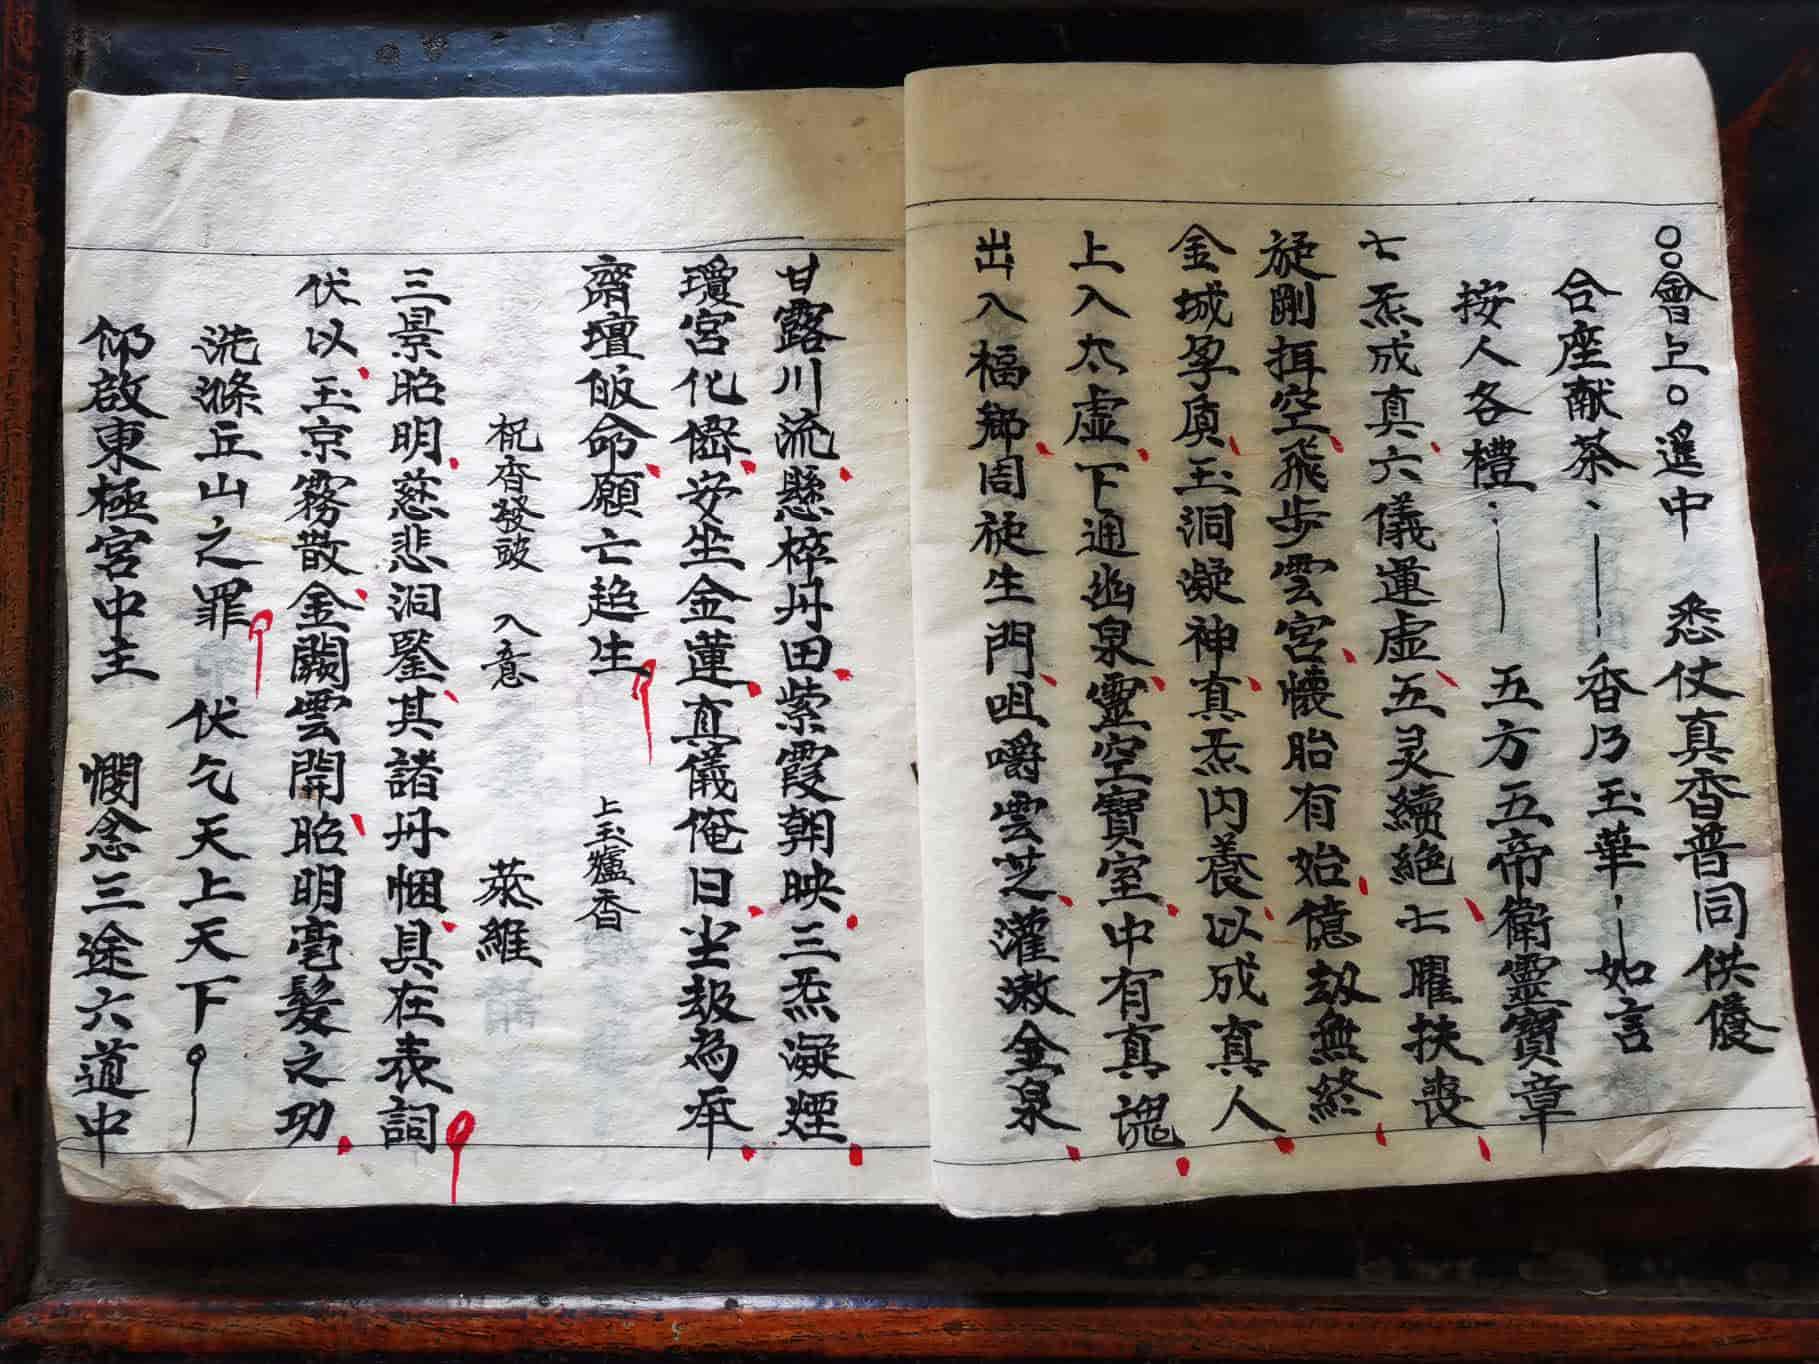 ○○會上○遥中　悉仗真香普同供養
合座献茶、｜香乃玉華｜如言
按人各禮：｜五方五帝衛靈寶章
七炁成真六儀運虚五灵續絕七曜扶喪
旋剛揖空飛步雲宮懷胎有始億劫無終
金城孕质玉洞凝神真炁内養以成真人
上入太虚下通幽泉靈空寶室中有真
出入福鄉周旋生門咀嚼雲芝灌漱金泉
甘露川流懸梓丹田紫霞朝映三炁凝煙
瓊宮化安坐金蓮真儀俺日尘劫為年
齋壇皈命願亡超生　上玉爐香
祝香發鼓　入意　恭維
三景昭明慈悲洞鑒其諸丹悃具在表詞
伏以玉京霧散金闕雲開昭明毫髮之功
洗滌丘山之罪　伏乞天上天下
仰啟東極宮中主　憫念三途六道中